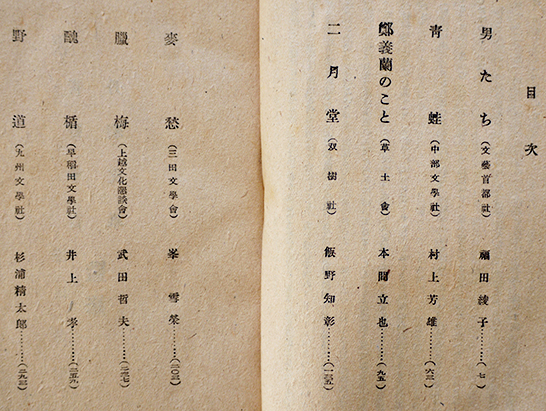 目次
男たち（文藝首都社）福田綾子……（七）
青蛙（中部文學社）村上芳雄……（六三）
鄭義蘭のこと（草土會）本間立也……（九五）
二月堂（双樹社）飯野知彰……（一三五）
麥愁（三田文學會）峯雪榮……（二〇三）
臘梅（上越文化懇談會）武田哲夫……（二三七）
醜楯（早稻田文學社）井上孝……（二五九）
野道（九州文學社）杉浦精太郎……（二九三）